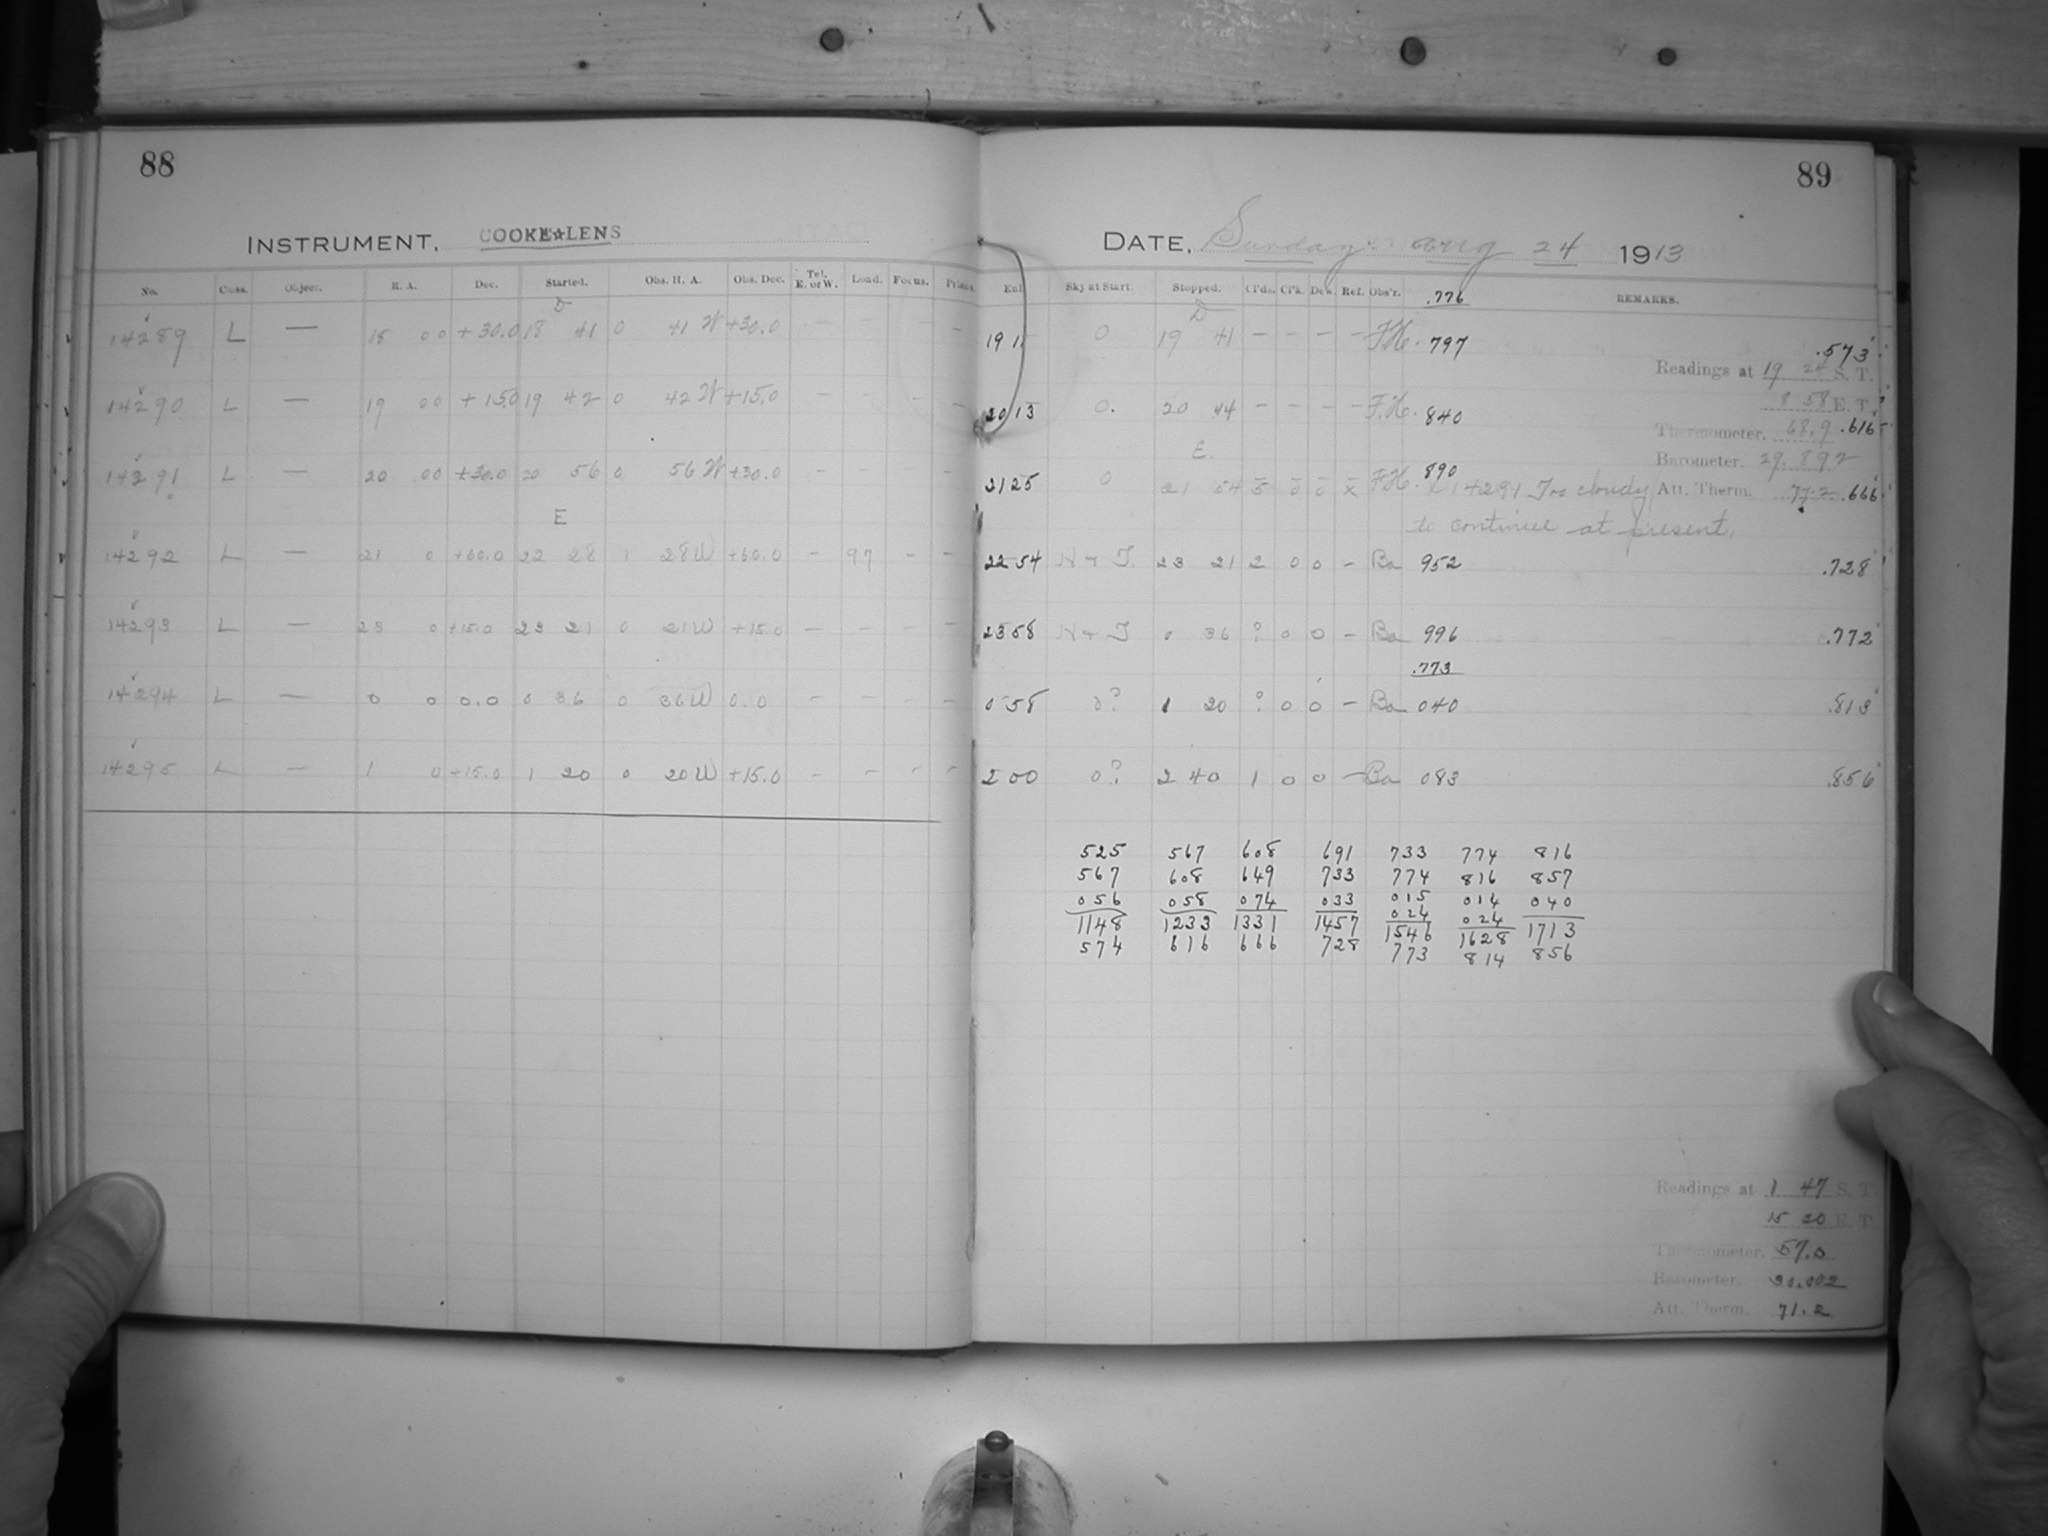 88
INSTRUMENT. COOKE LENS
No. Class. Object. R. A. Dec. Started. Obs. H. A. Obs. Dec. Tel. E. or W. Load. Focus. Prism.
D
14289 L — 18 00 +30.0 18 41 0 41 W +30.0 — — — —
14290 L — 19 00 +15.0 19 42 0 42 W +15.0 — — — —
14291 L — 20 00 +30.0 20 56 0 56 W +30.0 — — — —
E
14292 L — 21 0 +60.0 22 28 1 28 W +60.0 — 97 — —
14293 L — 23 0 +15.0 23 21 0 21 W +15.0 — — — —
14294 L — 0 0 0.0 0 36 0 36 W 0.0 — — — —
14295 L — 1 0 +15.0 1 20 0 20 W +15.0 — — — —
89
DATE, Sunday Aug 24 1913
Sky at Start. Stopped. Cl'ds. Cl'k. Dew. Ref. Obs'r. .776 REMARKS.
D
19 11 0 19 41 — — — — F.H. 797 .573
Readings at 19 24 S. T.
8 58 E. T.
20 13 0. 20 44 — — — — F.H. 840
Thermometer. 68.9 .616
Barometer. 29.892
E.
21 25 0 21 54 5 0 0 x F.H. 890 x 14291 Too cloudy Att. Therm. 77.2 .666
to continue at present.
22 54 H + T. 23 21 2 0 0 — Ba 952 .728
23 58 H + T 0 36 ? 0 0 — Ba 996 .772
.773
0 58 0? 1 20 ? 0 0 — Ba 040 .813
2 00 0? 2 40 1 0 0 — Ba 083 .856
525 567 608 691 733 774 816
567 608 649 733 774 816 857
056 058 074 033 015 014 040
024 024
1148 1233 1331 1457 1546 1628 1713
574 616 666 728 773 814 856
Readings at 1 47 S. T.
15 20 E. T.
Thermometer. 57.0
Barometer. 30.002
Att. Therm. 71.2